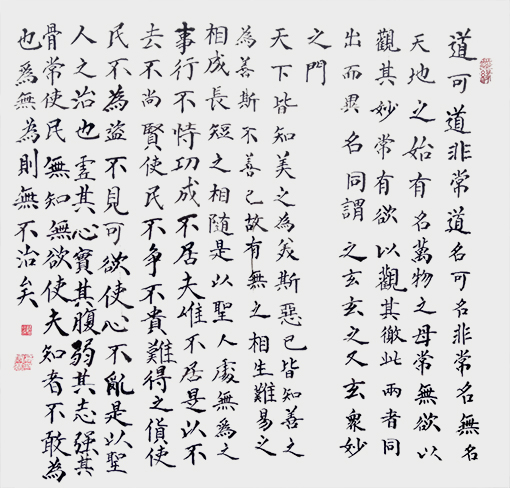 道可道非常道名可名非常名無名
天地之始有名萬物之母常無欲以
觀其妙常有欲以觀其徼此兩者同
出而異名同謂之玄玄之又玄眾妙
之門
天下皆知美之為美斯惡已皆知善之
為善斯不善已故有無之相生難易之
相成長短之相隨是以聖人處無為之
事行不恃功成不居夫唯不居是以不
去不尚賢使民不爭不貴難得之貨使
民不為盜不見可欲使心不亂是以聖
人之治也虛其心實其腹弱其志强其
骨常使民無知無欲使夫知者不敢為
也為無為則無不治矣